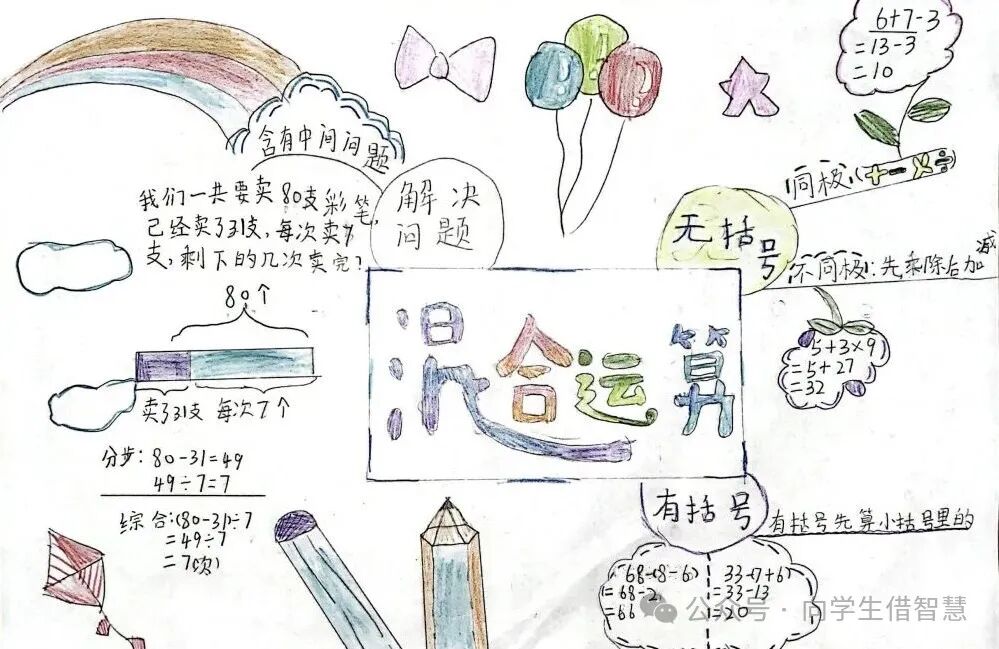 含有中间问题
我们一共要卖80支彩笔,
已经卖了31支,每次卖7
支,剩下的几次卖完?
80个
卖了31支 每次7个
分步:80-31=49
49÷7=7
综合:(80-31)÷7
=49÷7
=7(次)
解决
问题
混合运算
无括号
同极:(+-×÷
6+7-3
=13-3
=10
不同极:先乘除后加减
5+3×9
=5+27
=32
有括号
有括号先算小括号里的
68-(8-6)
=68-2
=66
33-(7+6)
=33-13
=20
公众号·向学生借智慧